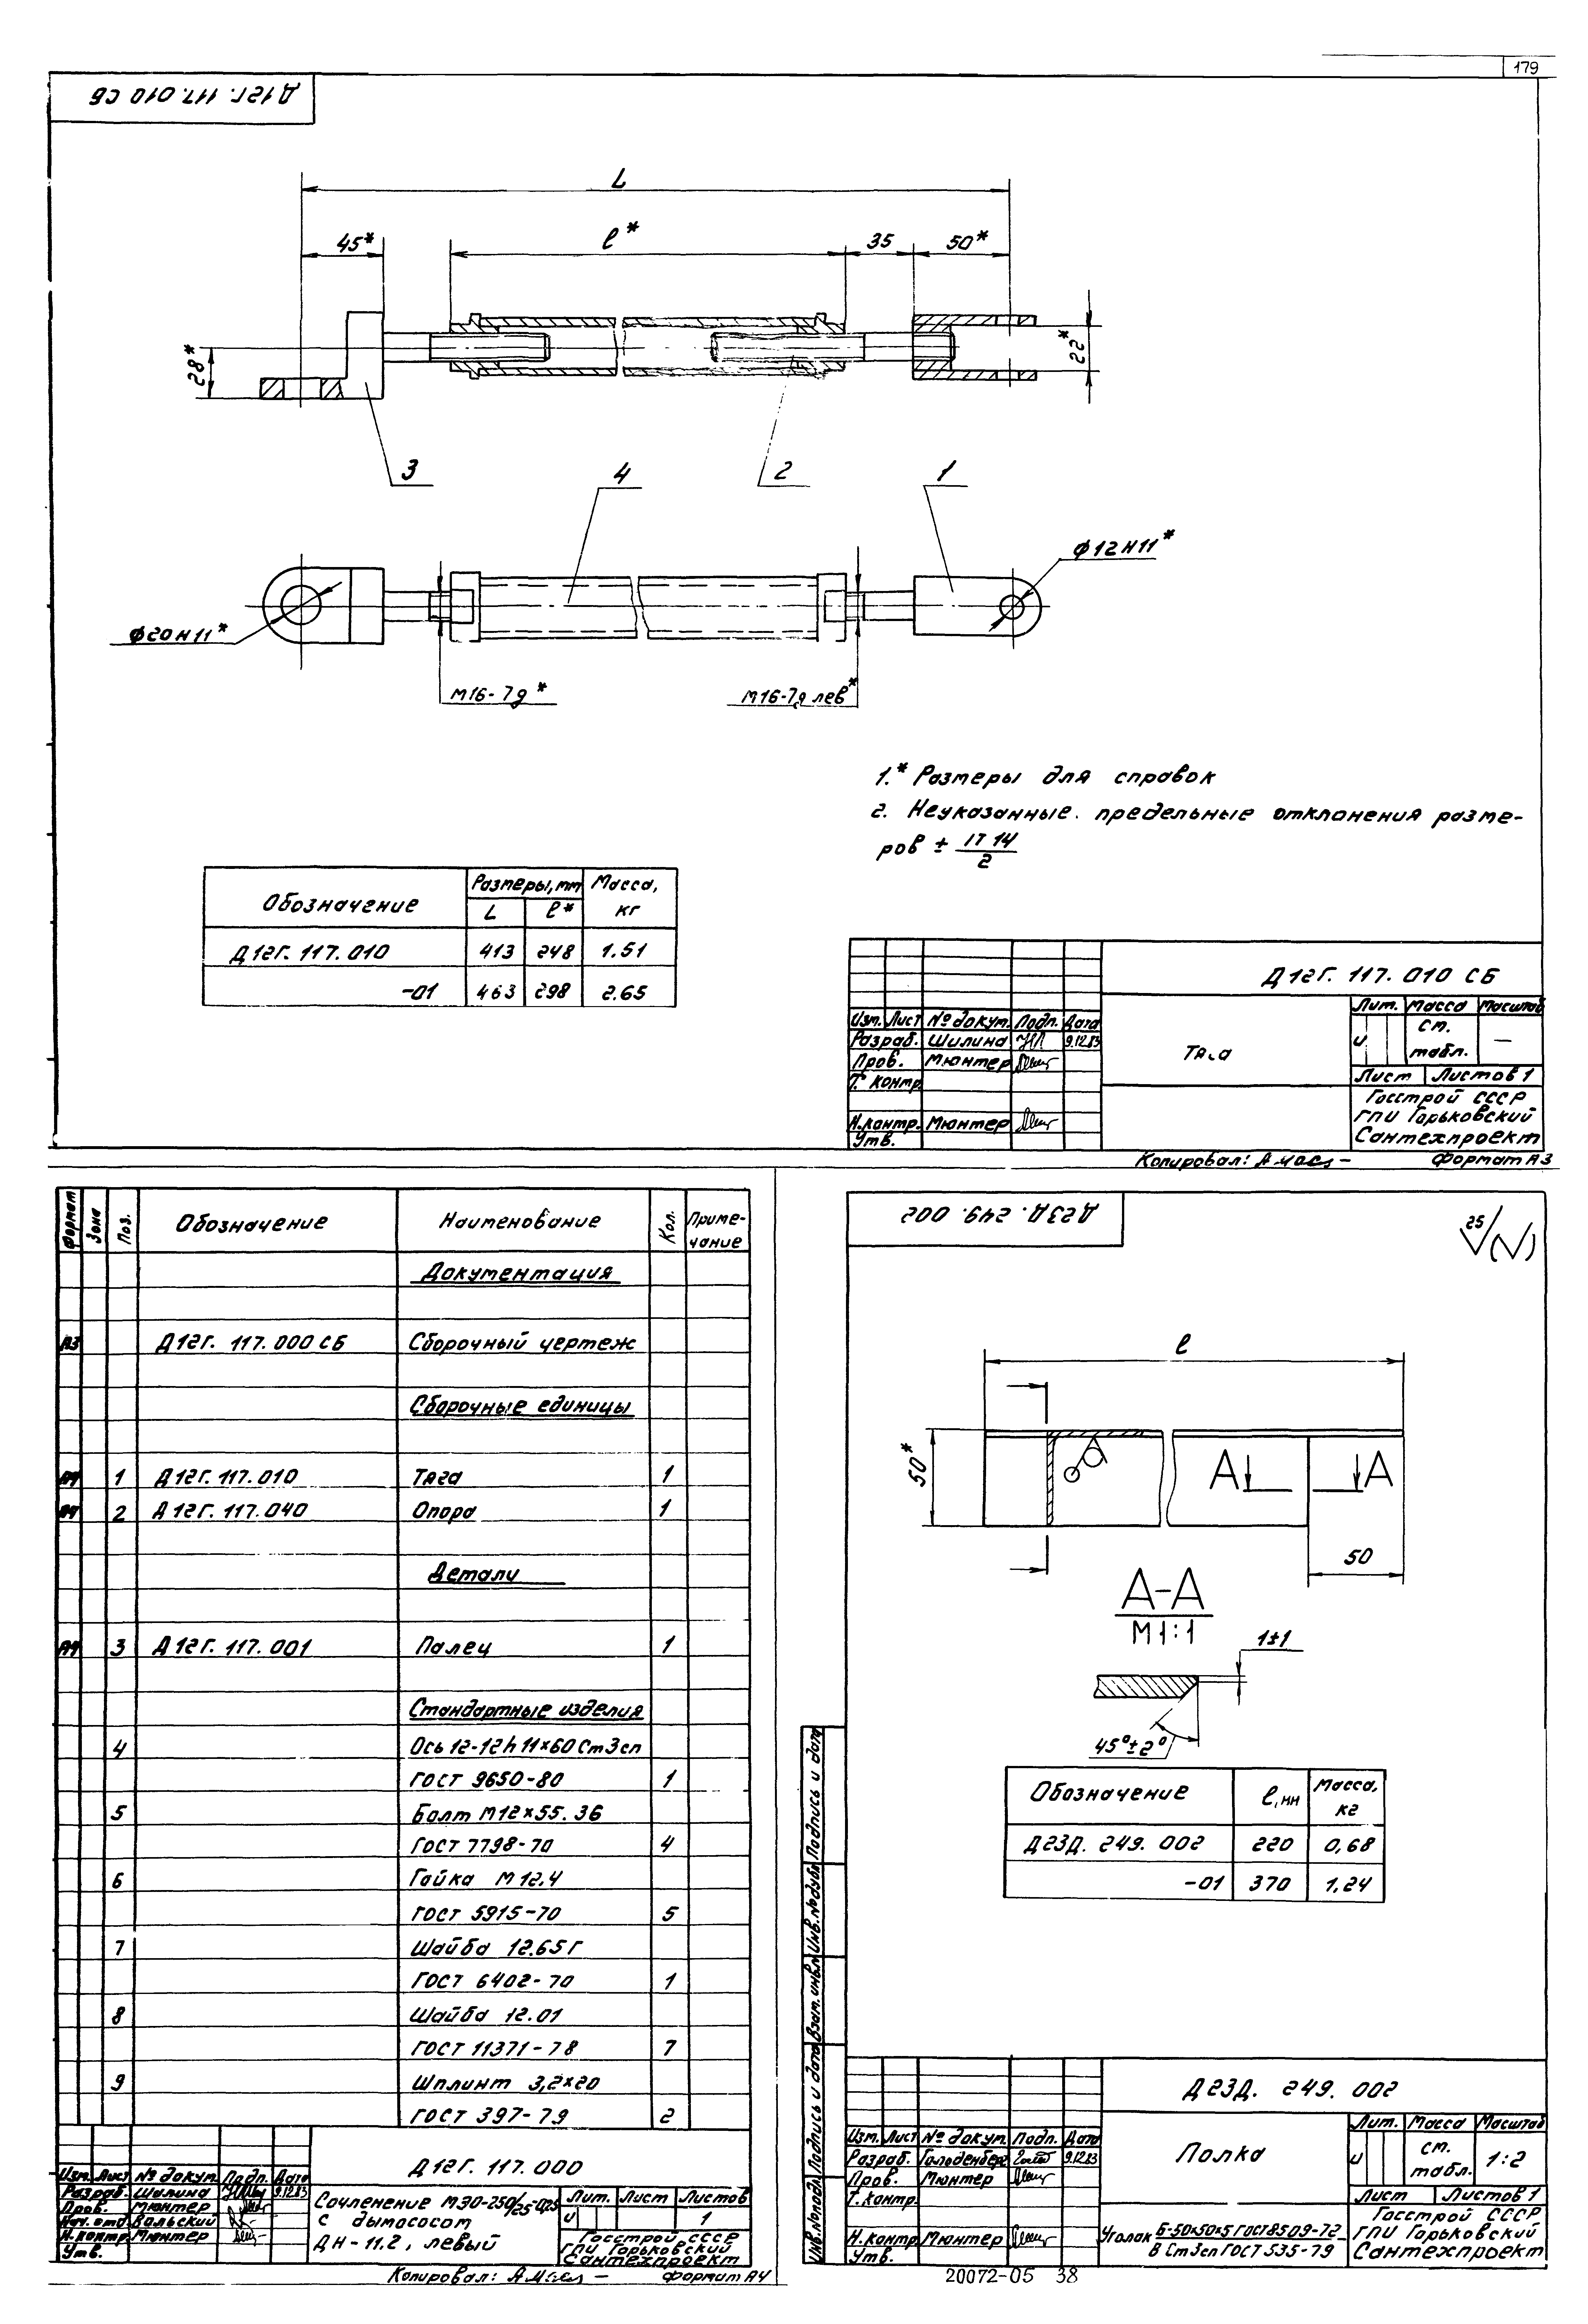 179
Д12Г. 117. 010 СБ
L
45*
ℓ*
35
50*
28*
22*
3
4
2
1
Ф12Н11*
Ф20Н11*
М16-7g*
М16-7g лев*
1.* Размеры для справок
2. Неуказанные предельные отклонения разме-
ров ± IT 14/2
Обозначение
Размеры, мм
Масса, кг
L
ℓ*
Д12Г. 117. 010 413 248 1.51
-01 463 298 2.65
Д12Г. 117. 010 СБ
Изм. Лист № докум. Подп. Дата
Разраб. Шилина 9.12.83
Пров. Мюнтер
Т. контр.
Н.контр. Мюнтер
Утв.
Тяга
Лит. Масса Масштаб
и см. табл. —
Лист Листов 1
Госстрой СССР
ГПИ Горьковский
Сантехпроект
Копировал:
Формат А3
Формат Зона Поз. Обозначение Наименование Кол. Приме-
чание
Документация
А3 Д12Г. 117. 000 СБ Сборочный чертеж
Сборочные единицы
А4 1 Д12Г. 117. 010 Тяга 1
А4 2 Д12Г. 117. 040 Опора 1
Детали
А4 3 Д12Г. 117. 001 Палец 1
Стандартные изделия
4 Ось 12-12h11×60 Ст3сп
ГОСТ 9650-80 1
5 Болт М12×55. 36
ГОСТ 7798-70 4
6 Гайка М12.4
ГОСТ 5915-70 5
7 Шайба 12.65Г
ГОСТ 6402-70 1
8 Шайба 12.01
ГОСТ 11371-78 7
9 Шплинт 3,2×20
ГОСТ 397-79 2
Д12Г. 117. 000
Изм. Лист № докум. Подп. Дата
Разраб. Шилина 9.12.83
Пров. Мюнтер
Нач. отд. Вольский
Н. контр. Мюнтер
Утв.
Сочленение МЭО-250/25-0,25
с дымососом
ДН-11.2, левый
Лит. Лист Листов
и 1
Госстрой СССР
ГПИ Горьковский
Сантехпроект
Копировал:
Формат А4
Д23Д. 249. 002
25
ℓ
50*
А А
50
А-А
М 1:1
1±1
45°±2°
Обозначение ℓ, мм Масса, кг
Д23Д. 249. 002 220 0,68
-01 370 1,24
Подпись и дата
Инв. № дубл.
Взам. инв. №
Подпись и дата
Инв. № подл.
Д23Д. 249. 002
Изм. Лист № докум. Подп. Дата
Разраб. Гольденберг 9.12.83
Пров. Мюнтер
Т. контр.
Н. контр. Мюнтер
Утв.
Полка
Лит. Масса Масштаб
и см. табл. 1:2
Лист Листов 1
Уголок Б-50×50×5 ГОСТ 8509-72
В Ст3сп ГОСТ 535-79
Госстрой СССР
ГПИ Горьковский
Сантехпроект
20072-05 38